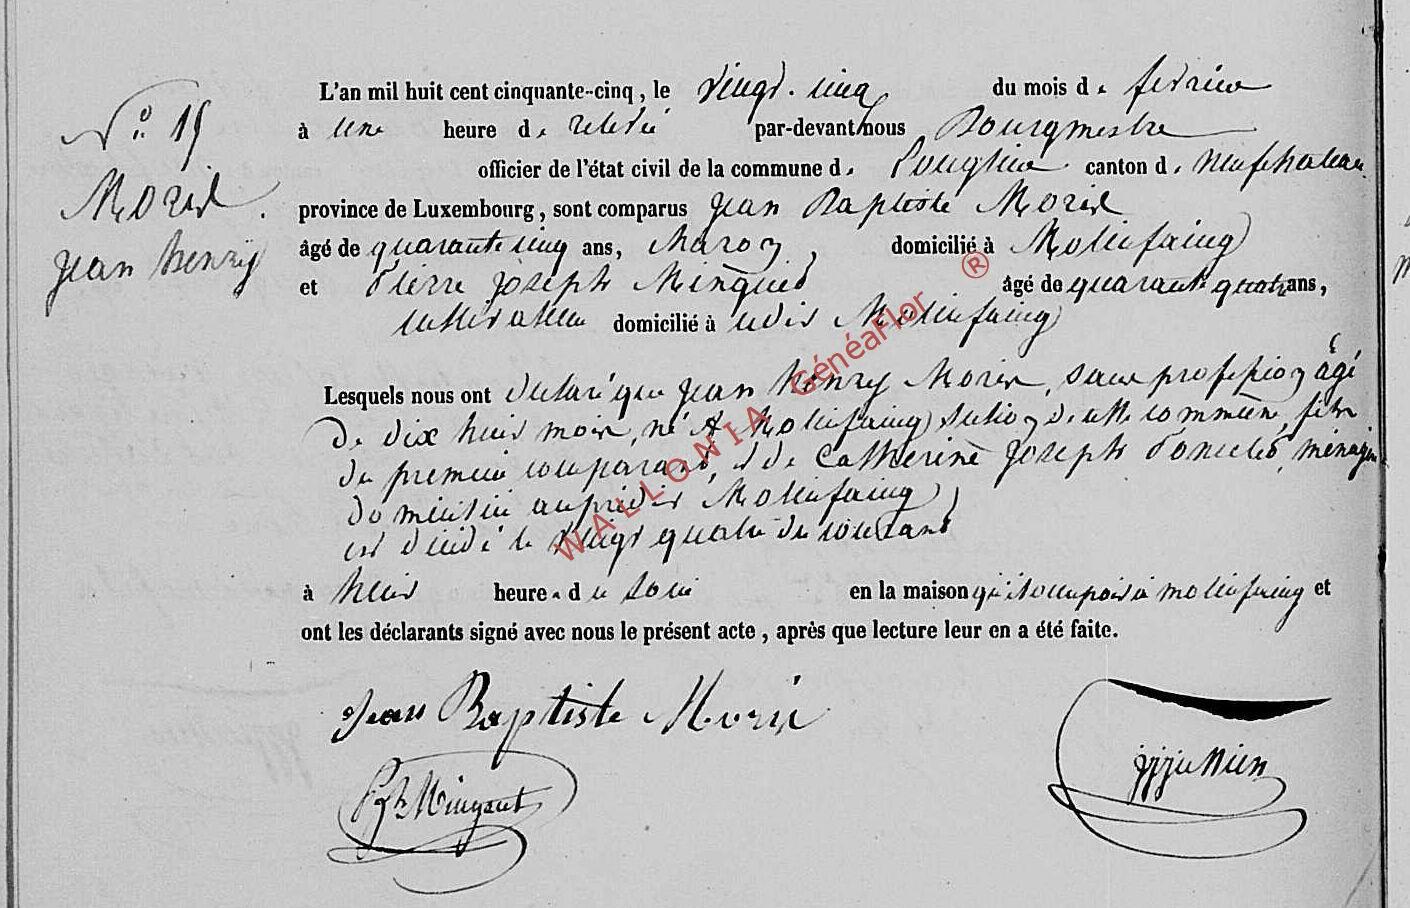 N° 15
Moris
Jean henry
L'an mil huit cent cinquante-cinq, le vingt-cinq du mois de fevrier
à une heure de relevée par-devant nous Bourgmestre
officier de l'état civil de la commune de Longlier canton de neufchateau
province de Luxembourg, sont comparus Jean Baptiste Moris
âgé de quarante cinq ans, Maçon, domicilié à Molinfaing
et Pierre Joseph Minguet âgé de quarante quatre ans,
cultivateur domicilié à udit Molinfaing
Lesquels nous ont declaré que Jean henry Moris, sans profession âgé
de dix huit mois, né à Molinfaing section de cette commune, fils
du premier comparant, et de Catherine Joseph Poncelet, ménagère
domicilié auprédit Molinfaing,
est décédé le vingt quatre du courant
à huit heures du soir en la maison qu'il occupoit à molinfaing et
ont les déclarants signé avec nous le présent acte, après que lecture leur en a été faite.
Jean Baptiste Moris
Mingeut
WALLONIA GénéaFlor ®